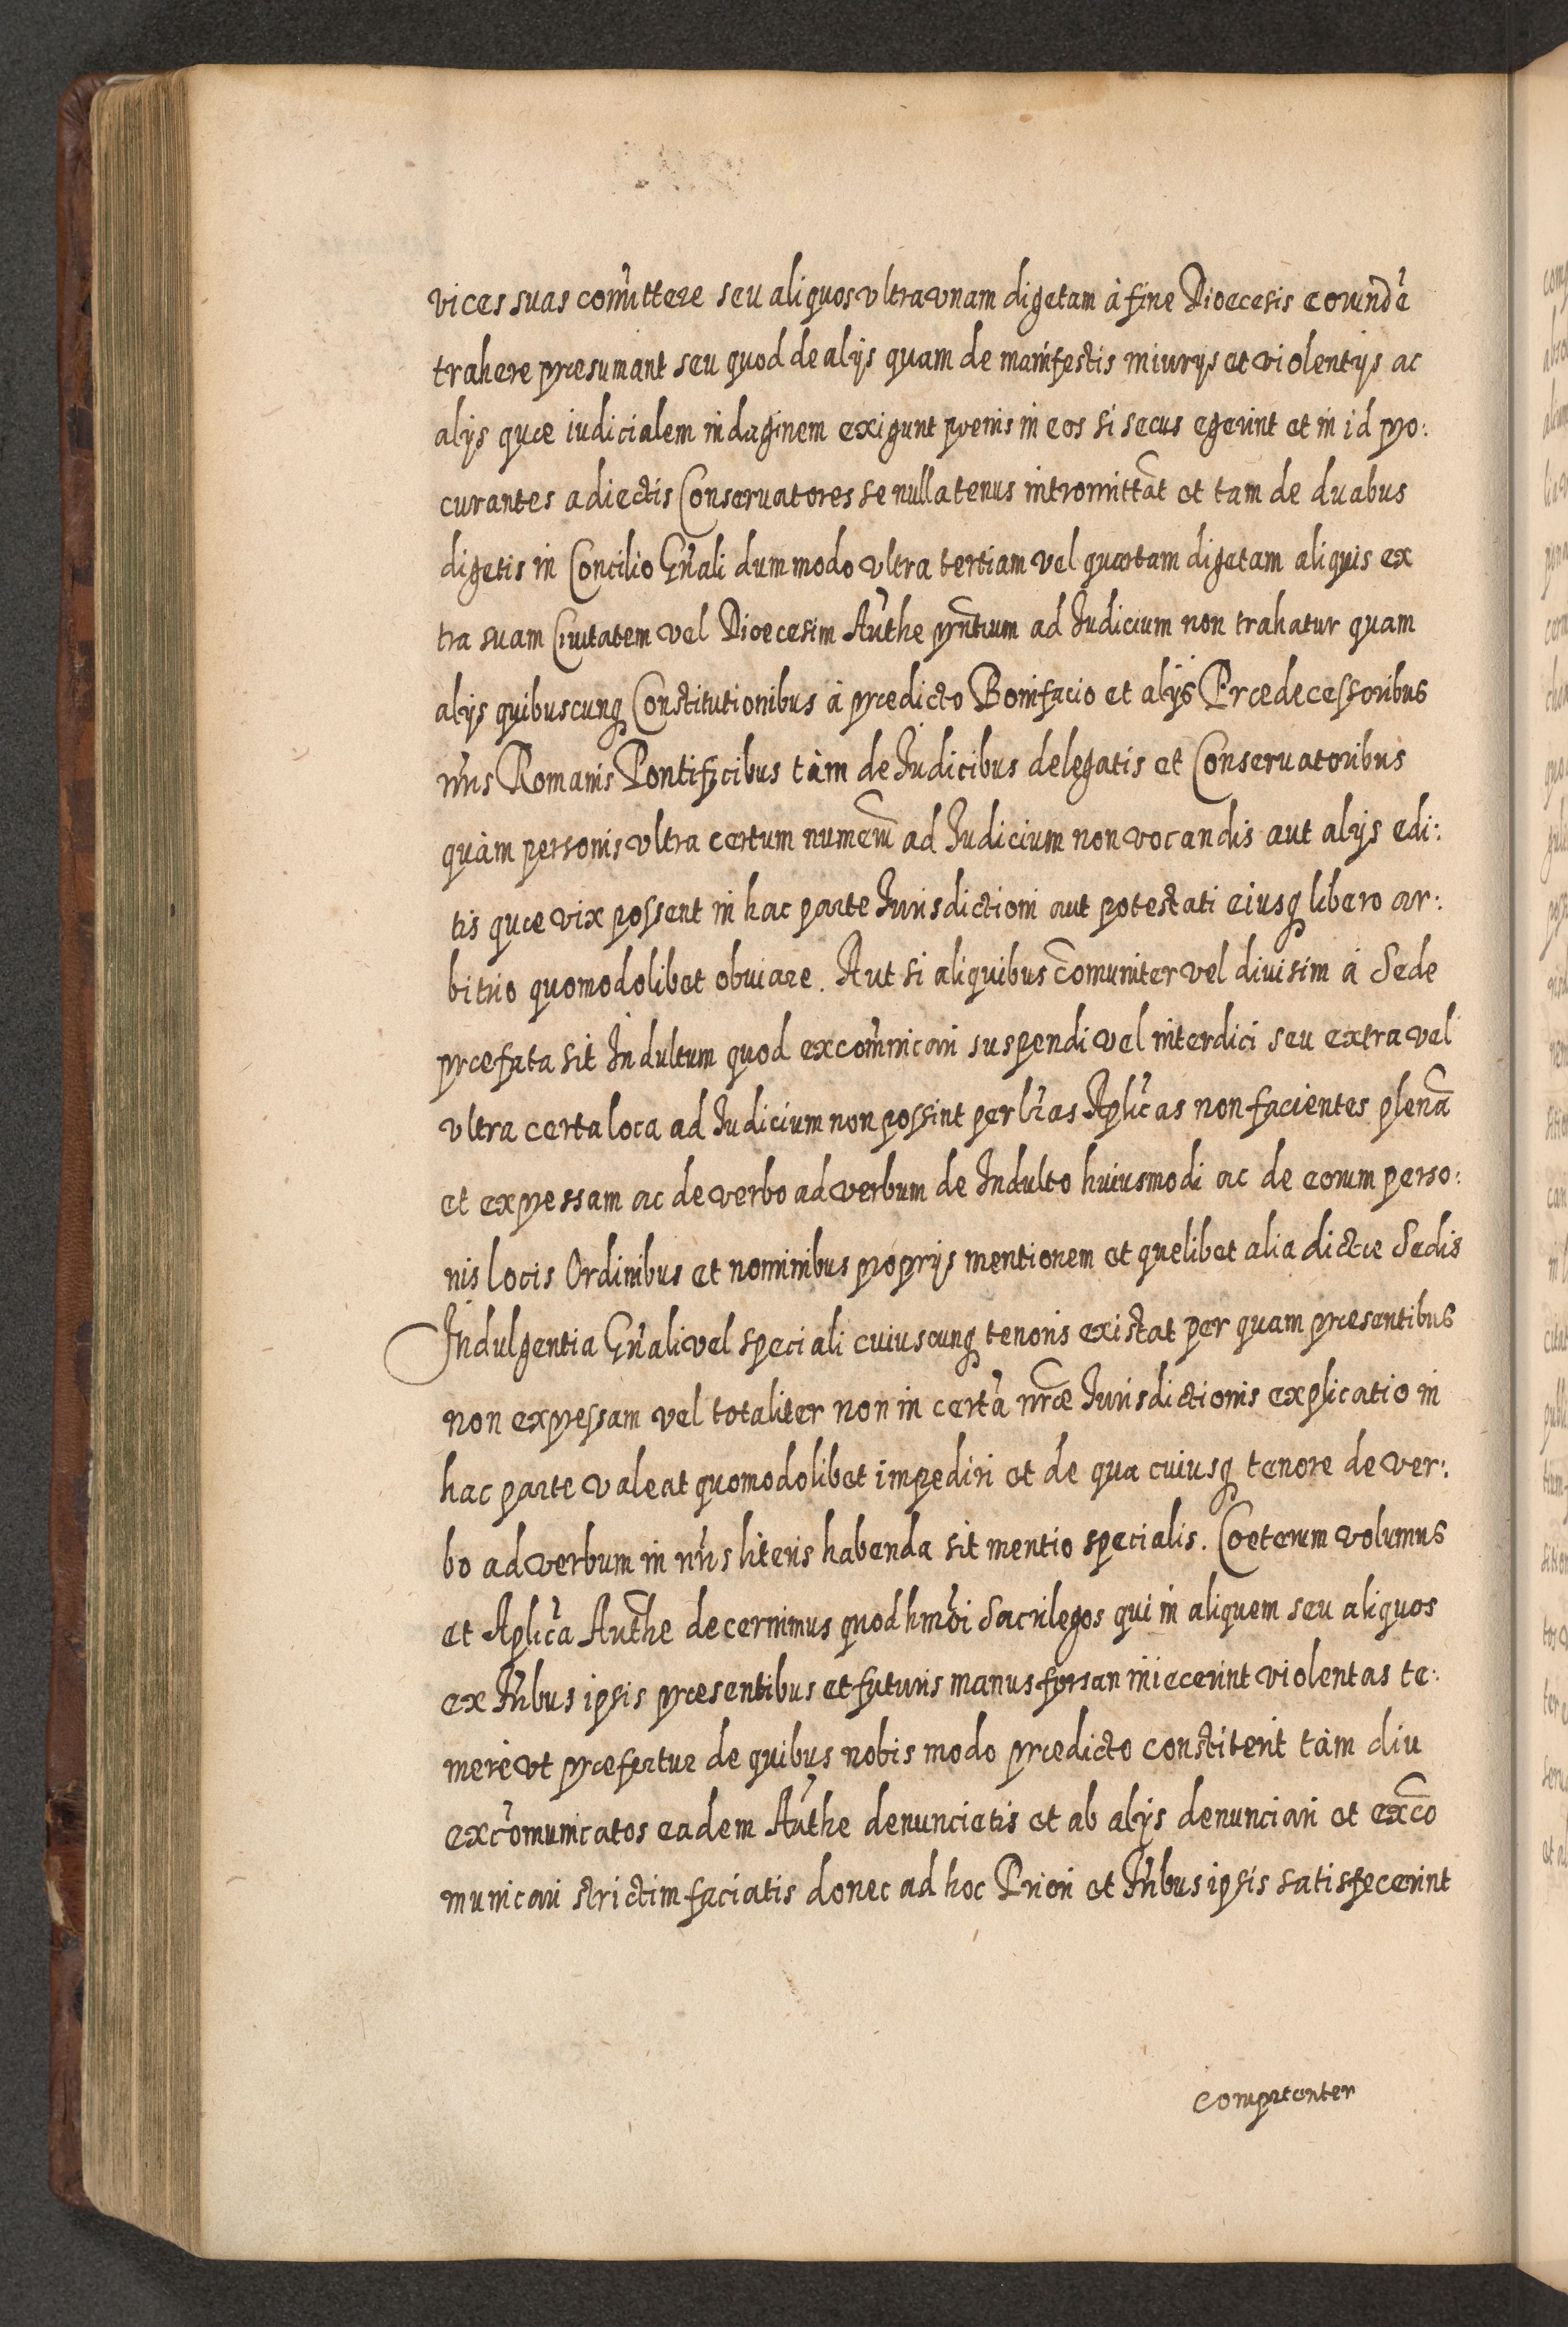 vices suas com̃ittere seu aliquos vltra vnam digetam à fine Diœcesis eorund̃e
trahere præsumant seu quod de alijs quam de manifestis iniurijs et violentijs ac
alijs quæ iudicialem indaginem exigunt pœnis in eos si secus egerint et in id pro:
curantes adiectis Conseruatores se nullatenus intromittãt et tam de duabus
digetis in Concilio Gñali dummodo vltra tertiam vel quartam digetam aliquis ex
tra suam Ciuitatem vel Diœcesim Aũthe prñtium ad Iudicium non trahatur quam
alijs quibuscunq Constitutionibus à prædicto Bonifacio et alijs Prædecessoribus
nr̃is Romanis Pontificibus tàm de Iudicibus delegatis et Conseruatoribus
quàm personis vltra certum numer̃u ad Iudicium non vocandis aut alijs edi:
tis quæ vix possent in hac parte Iurisdictioni aut potestati eiusq libero ar:
bitrio quomodolibet obuiare. Aut si aliquibus c̃omuniter vel diuisim à Sede
præfata sit Indultum quod excom̃nicari suspendi vel interdici seu extra vel
vltra certa loca ad Iudicium non possint per lr̃as Aplic̃as non facientes plenã
et expressam ac de verbo ad verbum de Indulto huiusmodi ac de eorum perso:
nis locis Ordinibus et nominibus proprijs mentionem et quelibet alia dictæ Sedis
Indulgentia Gñali vel speciali cuiuscunq tenoris existat per quam præsentibus
non expressam vel totaliter non in certã nr̃æ Iurisdictionis explicatio in
hac parte valeat quomodolibet impediri et de qua cuiusq tenore de ver:
bo ad verbum in nr̃is literis habenda sit mentio specialis. Cœterum volumus
et Aplic̃a Aũthe decernimus quod hm̃oi Sacrilegos qui in aliquem seu aliquos
ex Fr̃ibus ipsis præsentibus et futuris manus forsan iniecerint violentas te:
merè vt præfertur de quibus nobis modo prædicto constiterit tàm diu
exc̃omunicatos eadem Aũthe denuncietis et ab alijs denunciari et exc̃o
municari strictim faciatis donec ad hoc Priori et Fr̃ibus ipsis satisfecerint
compretenter